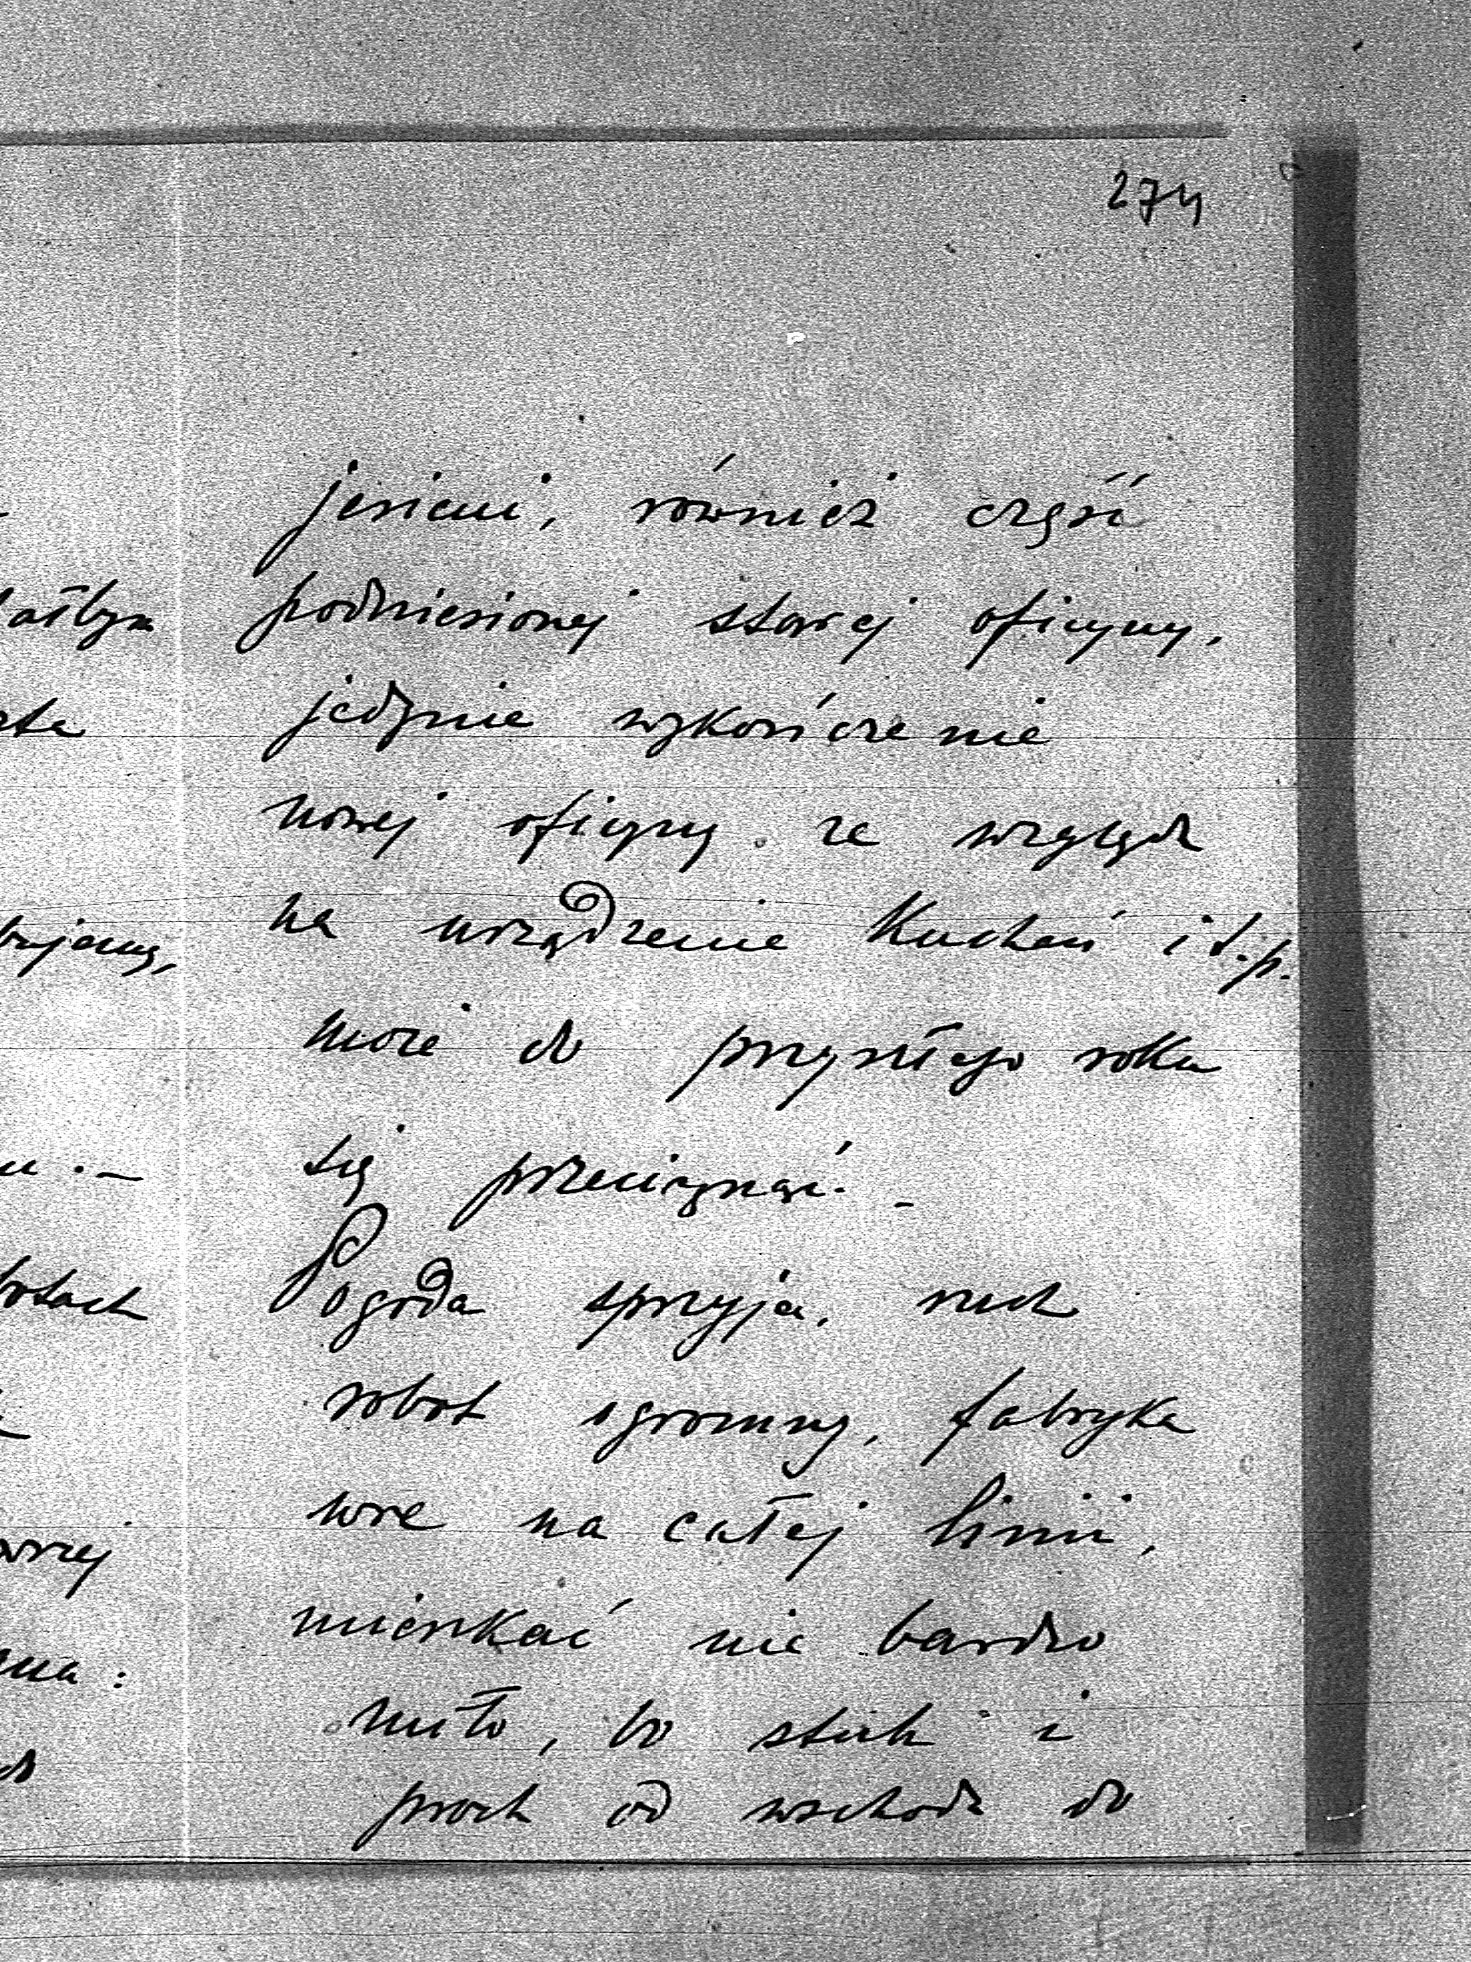 274
jesieni, również część
podniesionej starej oficyny,
jedynie wykończenie
nowej oficyny ze względu
na urządzenie kuchen i t.p.
może do przyszłego roku
się przeciągnąć. –
Pogoda sprzyja, ruch
robot ogromny, fabryka
wre na całej linii,
mieszkać nie bardzo
miło, bo stuk i
proch od wschodu do